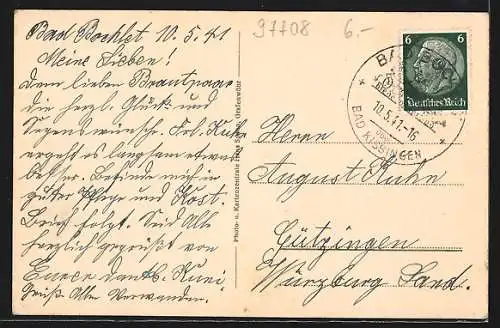 97708 6.-
Bad Bocklet 10.5.41
Meine Lieben!
Dem lieben Brautpaar
die herzl. Glück- und
Segenswünsche. Frl. Kuhn
ergeht es langsam etwas
besser. Befinde mich in
guter Pflege und Kost.
Brief folgt. Seid Alle
herzlich gegrüßt von
Eurer dankb. Kuni.
Grüß. Alle Verwanden.
Photo- u. Kartenzentrale
6 6
Deutsches Reich
10.5.41.-16
BAD KISSINGEN
Herrn
August Kuhn
Gützingen
Würzburg Land.